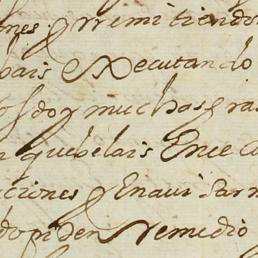 ones y rremitiendo
bais executando
doy muchas gra
quebelais Ence
ciones y Enavisarm
do piden rremedio